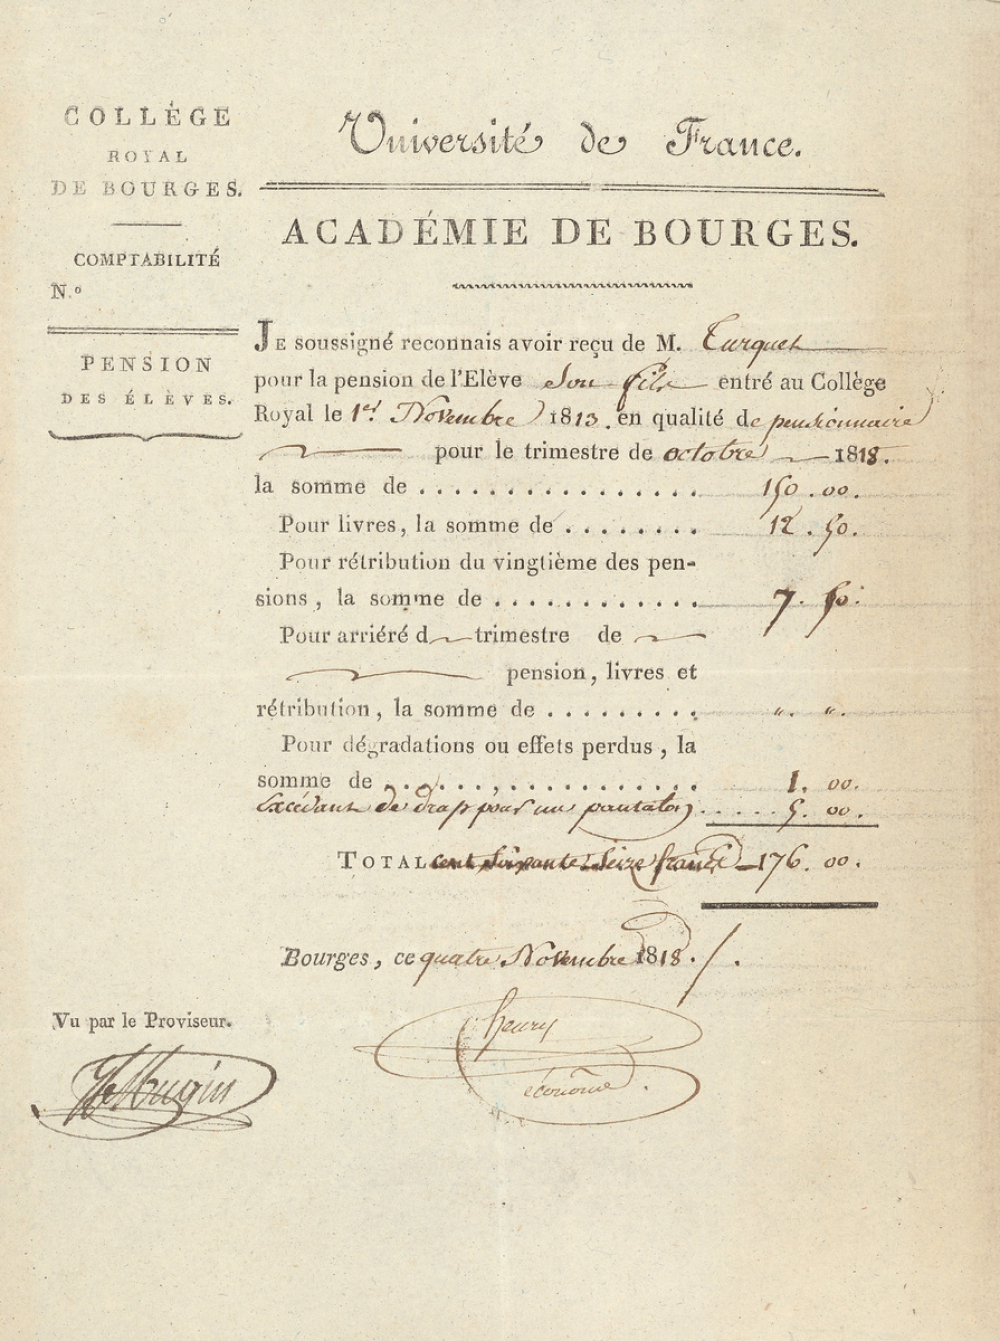 COLLÉGE
ROYAL
DE BOURGES.
COMPTABILITÉ
N.º
PENSION
DES ÉLÈVES.
Université de France.
ACADÉMIE DE BOURGES.
JE soussigné reconnais avoir reçu de M. Turquet
pour la pension de l'Elève Son fils entré au Collège
Royal le 1er Novembre 1813. en qualité de pensionnaire
pour le trimestre de octobre 1818.
la somme de . . . . . . . . . . . . . . . . 150 . 00.
Pour livres, la somme de . . . . . . . . 12 . 50.
Pour rétribution du vingtième des pen-
sions, la somme de . . . . . . . . . . . . 7. 50.
Pour arriéré d trimestre de
pension, livres et
rétribution, la somme de . . . . . . . . . ". ".
Pour dégradations ou effets perdus, la
somme de . . . . . . . . . . . . . . . . . 1. 00.
Excédant de drap pour un pantalon . . . . . 5. 00.
TOTAL cent Soixante Seize francs 176. 00.
Bourges, ce quatre Novembre 1818. /.
Vu par le Proviseur.
henry
économe.